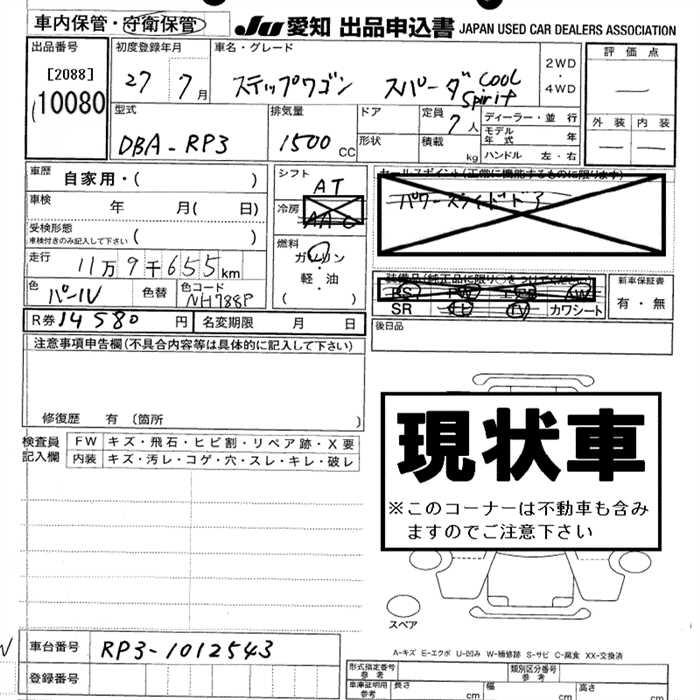 車内保管・守衛保管 JU 愛知 出品申込書 JAPAN USED CAR DEALERS ASSOCIATION
出品番号 初度登録年月 車名・グレード 評価点
[2088] 27 7月 ステップワゴン スパーダ COOL Spirit 2WD・4WD
10080
外装 内装
型式 排気量 ドア 定員 ディーラー・並行
DBA-RP3 1500 CC 7人 モデル年式 年
形状 積載 kg ハンドル 左・右
車歴 自家用・( ) シフト AT セールスポイント(正常に機能するものに限ります)
車検 年 月( 日) 冷房 AAC パワースライドドア
受検形態 車検付きのみ記入して下さい ( )
走行 11万9千655km 燃料 ガソリン・軽・油 ( )
色 パール 色替 色コード NH788P
新車保証書 有・無
PS PW AW
SR TV カワシート
R券 14580円 名変期限 月 日 後日品
注意事項申告欄(不具合内容等は具体的に記入して下さい)
修復歴 有 〔箇所 〕
現状車
※このコーナーは不動車も含みますのでご注意下さい
検査員記入欄 FW キズ・飛石・ヒビ割・リペア跡・X要
内装 キズ・汚レ・コゲ・穴・スレ・キレ・破レ
スペア
A-キズ E-エクボ U-凹み W-補修跡 S-サビ C-腐食 XX-交換済
車台番号 RP3-1012543
登録番号
形式指定番号 参考 類別区分番号 参考
車庫証明用 参考 長さ cm 幅 cm 高さ cm